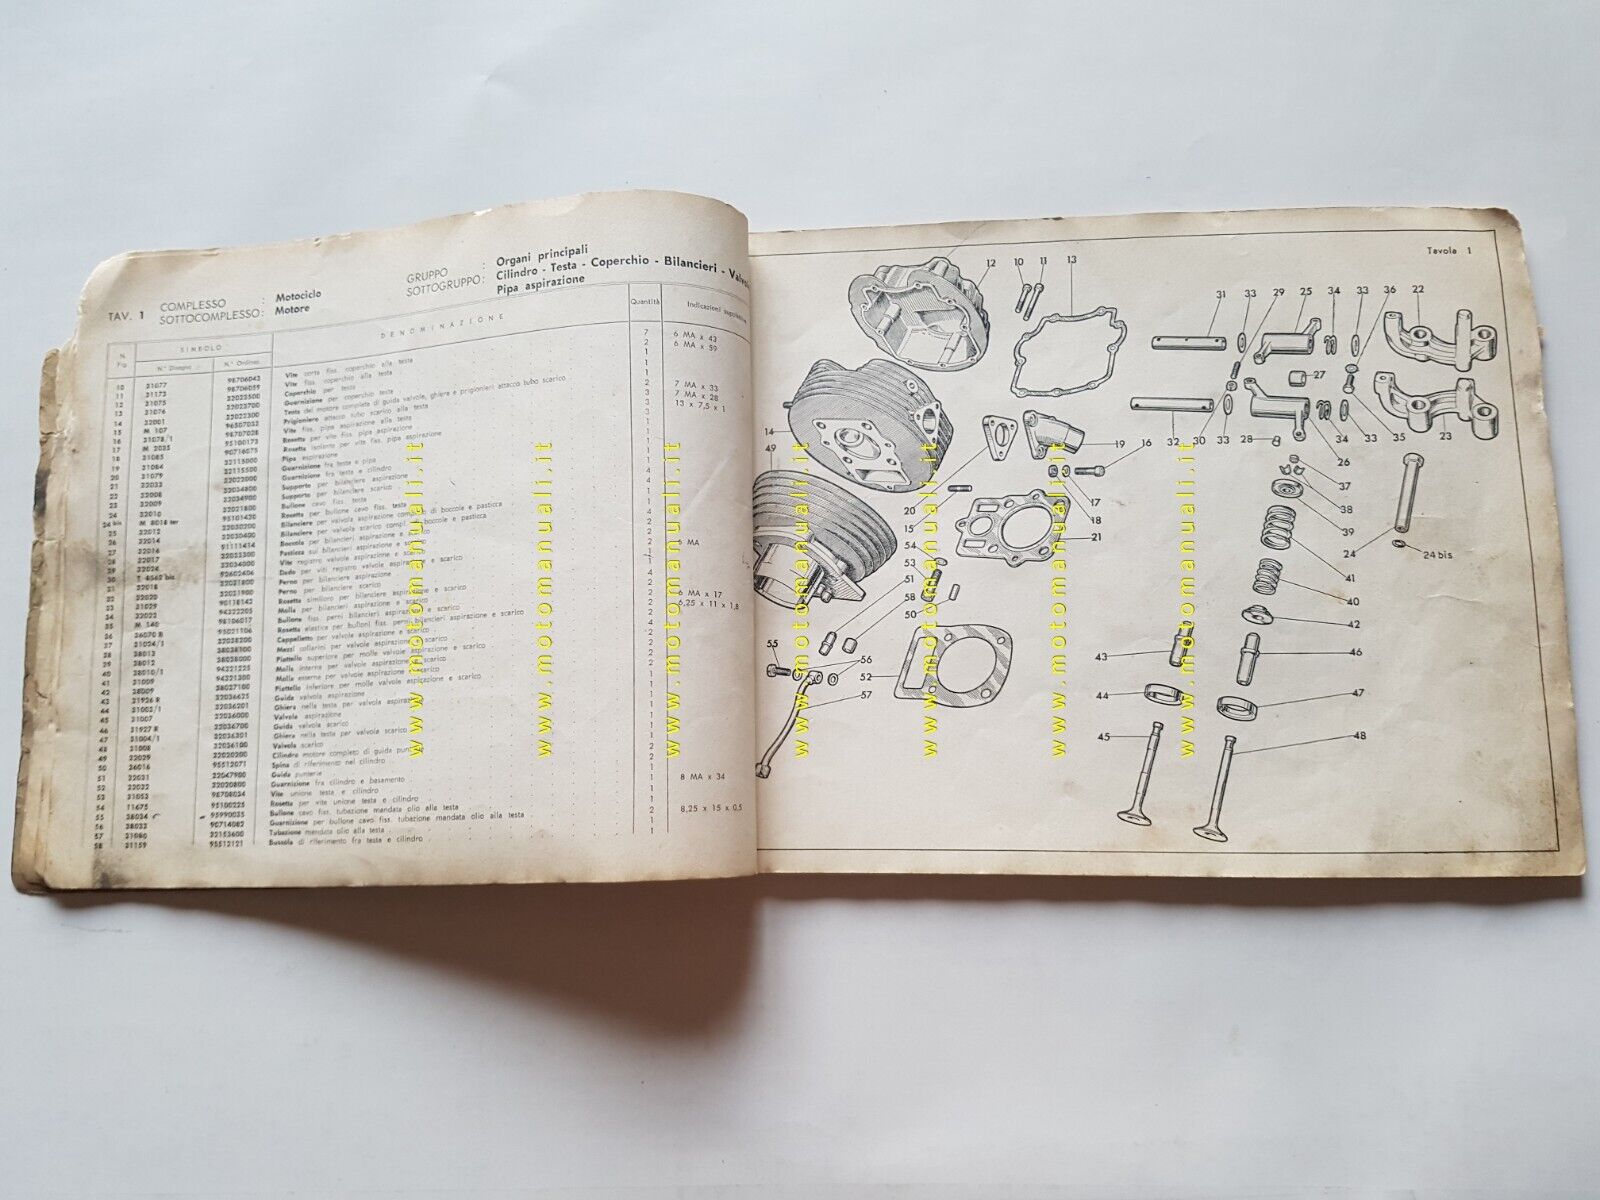 TAV. 1
COMPLESSO : Motociclo
SOTTOCOMPLESSO: Motore
GRUPPO : Organi principali
SOTTOGRUPPO: Cilindro - Testa - Coperchio - Bilancieri -
Pipa aspirazione
N. Fig.
SIMBOLO
N.º Disegno
N.º Ordinaz.
DENOMINAZIONE
Quantità
Indicazioni
10 31077 98706043 Vite corta fiss. coperchio alla testa 7 6 MA x 43
11 31173 98706059 Vite fiss. coperchio alla testa 2 6 MA x 59
12 31075 22023500 Coperchio per testa 1
13 31076 22023700 Guarnizione per coperchio testa 1
14 32001 22022300 Testa del motore completa di guida valvole, ghiera e prigionieri attacco tubo scarico 1
15 M 107 96507032 Prigioniero attacco tubo scarico alla testa 2 7 MA x 33
16 31078/1 98707028 Vite fiss. pipa aspirazione alla testa 3 7 MA x 28
17 M 2035 95100173 Rosetta per vite fiss. pipa aspirazione 3 13 x 7,5 x 1
18 31085 90716075 Rosetta isolante per vite fiss. pipa aspirazione
19 31084 22115000 Pipa aspirazione
20 31079 22115500 Guarnizione fra testa e pipa
21 32033 22022000 Guarnizione fra testa e cilindro
22 32008 22034800 Supporto per bilanciere aspirazione
23 32009 22034900 Supporto per bilanciere scarico
24 32010 22021800 Bullone cavo fiss. testa
24 bis M 8018 ter 95101420 Rosetta per bullone cavo fiss. testa
25 32012 22030200 Bilanciere per valvola aspirazione completo di boccole e pasticca
26 32014 22030400 Bilanciere per valvola scarico compl. di boccole e pasticca
27 32016 91111414 Boccola per bilancieri aspirazione e scarico
28 32017 22032300 Pasticca sui bilancieri aspirazione e scarico
29 32024 22034000 Vite registro valvole aspirazione e scarico 6 MA
30 T 4562 bis 92602406 Dado per viti registro valvole aspirazione e scarico
31 32018 22031800 Perno per bilanciere aspirazione
32 32020 22031900 Perno per bilanciere scarico
33 31029 90118142 Rosetta
34 32022 22032205 Molla per bilancieri aspirazione e scarico
35 M 140 98106017 Bullone fiss. perni bilancieri aspirazione e scarico 6 MA x 17
36 36070 B 95021106 Rosetta elastica per bulloni fiss. perni bilancieri aspirazione e scarico 6,25 x 11 x 1,8
37 31024/1 22038200 Cappelletto per valvole aspirazione e scarico
38 38013 38038300 Mezzi collarini per valvole aspirazione e scarico
39 38012 38038000 Piattello superiore per molle valvole aspirazione e scarico
40 38010/1 94321225 Molla interna per valvole aspirazione e scarico
41 31009 94321300 Molla esterna per valvole aspirazione e scarico
42 38009 38037100 Piattello inferiore per molle valvole aspirazione e scarico
43 31926 R 22036625 Guida valvola aspirazione
44 31002/1 22036201 Ghiera nella testa per valvola aspirazione
45 31007 22036000 Valvola aspirazione
46 31927 R 22036700 Guida valvola scarico
47 31004/1 22036301 Ghiera nella testa per valvola scarico
48 31008 22036100 Valvola scarico
49 32029 22020200 Cilindro motore completo di guida punterie
50 36016 95512071 Spina di riferimento nel cilindro
51 32031 22047900 Guida punterie
52 32032 22020800 Guarnizione fra cilindro e basamento 1
53 31053 98708034 Vite unione testa e cilindro 1 8 MA x 34
54 11675 95100225 Rosetta per vite unione testa e cilindro 1
55 38034 95990035 Bullone cavo fiss. tubazione mandata olio alla testa 1
56 38033 90714082 Guarnizione per bullone cavo fiss. tubazione mandata olio alla testa 2 8,25 x 15 x 0,5
57 31080 22153600 Tubazione mandata olio alla testa 1
58 31159 95512121 Bussola di riferimento fra testa e cilindro 1
Tavola 1
12 10 11 13
31 33 29 25 34 33 36 22
27
14 32 30 33 28 34 33 35 23
49 19 16 26
20 17 37
15 18 38
54 21 39
53 24 24 bis
51 41
58 40
50 42
55 56 43 46
52 57 44 47
45 48
www.motomanuali.it
www.motomanuali.it
www.motomanuali.it
www.motomanuali.it
www.motomanuali.it
www.motomanuali.it
www.motomanuali.it